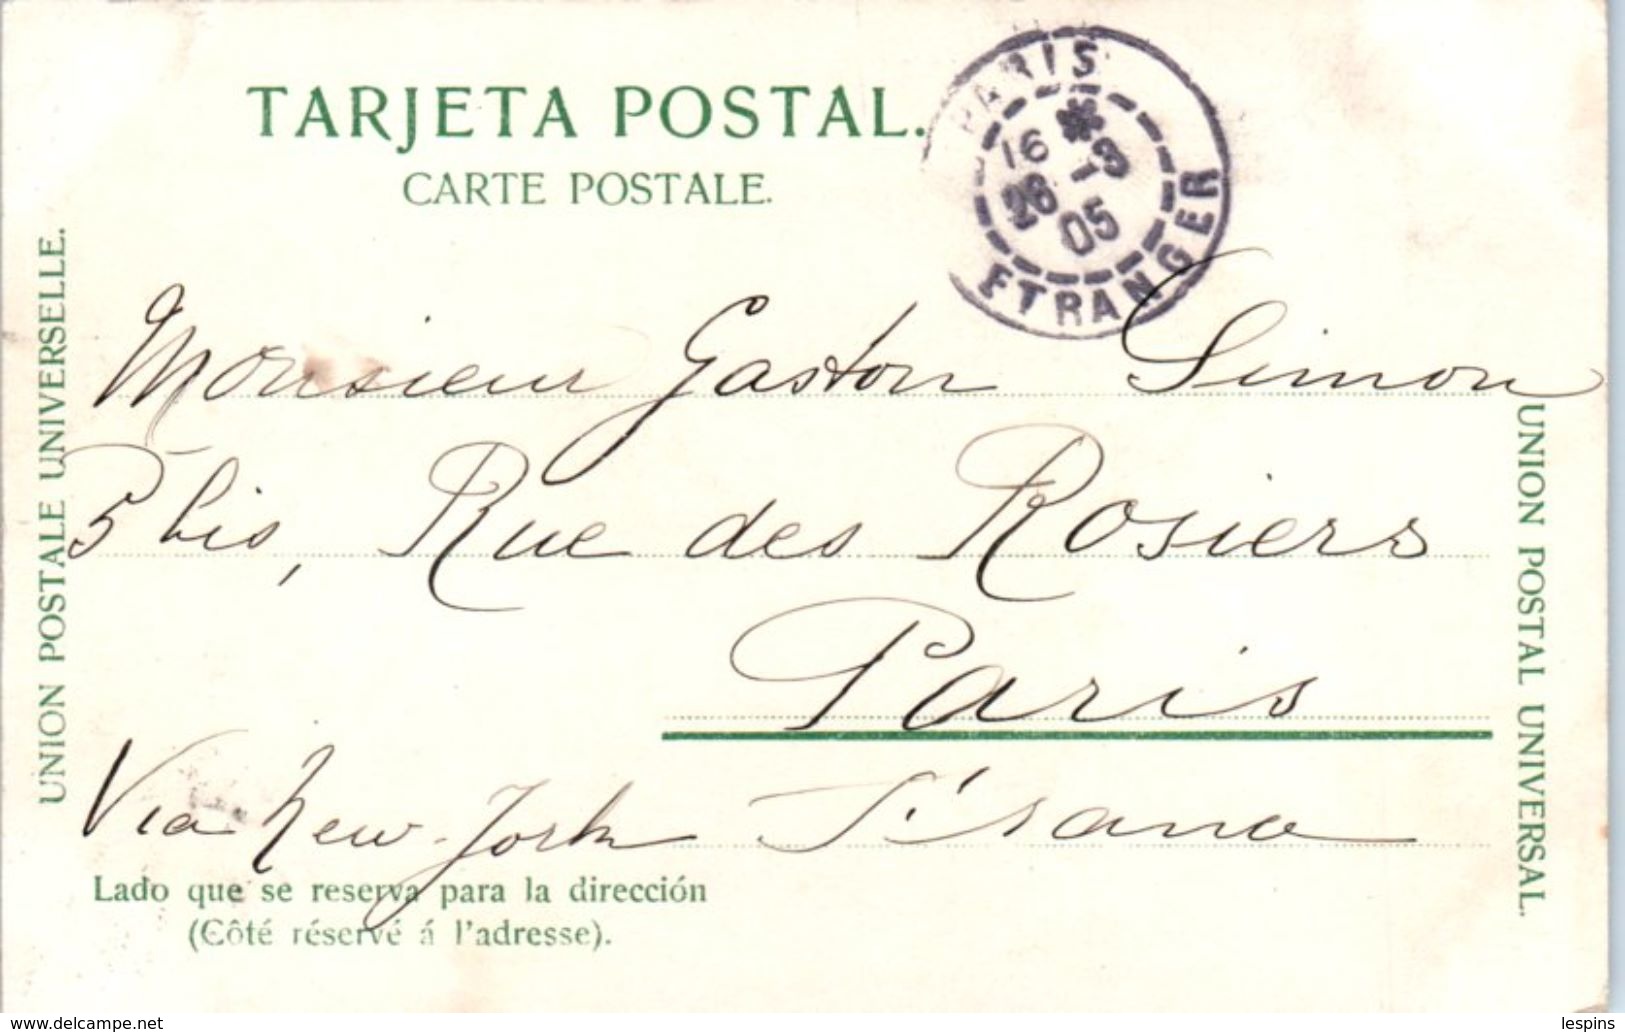 TARJETA POSTAL.
CARTE POSTALE.
PARIS
16 * -3
26
05
ETRANGER
UNION POSTALE UNIVERSELLE.
Monsieur Gaston Simon
5 bis, Rue des Rosiers
Paris
Via New-York
UNION POSTAL UNIVERSAL.
Lado que se reserva para la dirección
(Côté réservé á l'adresse).
www.delcampe.net
lespins